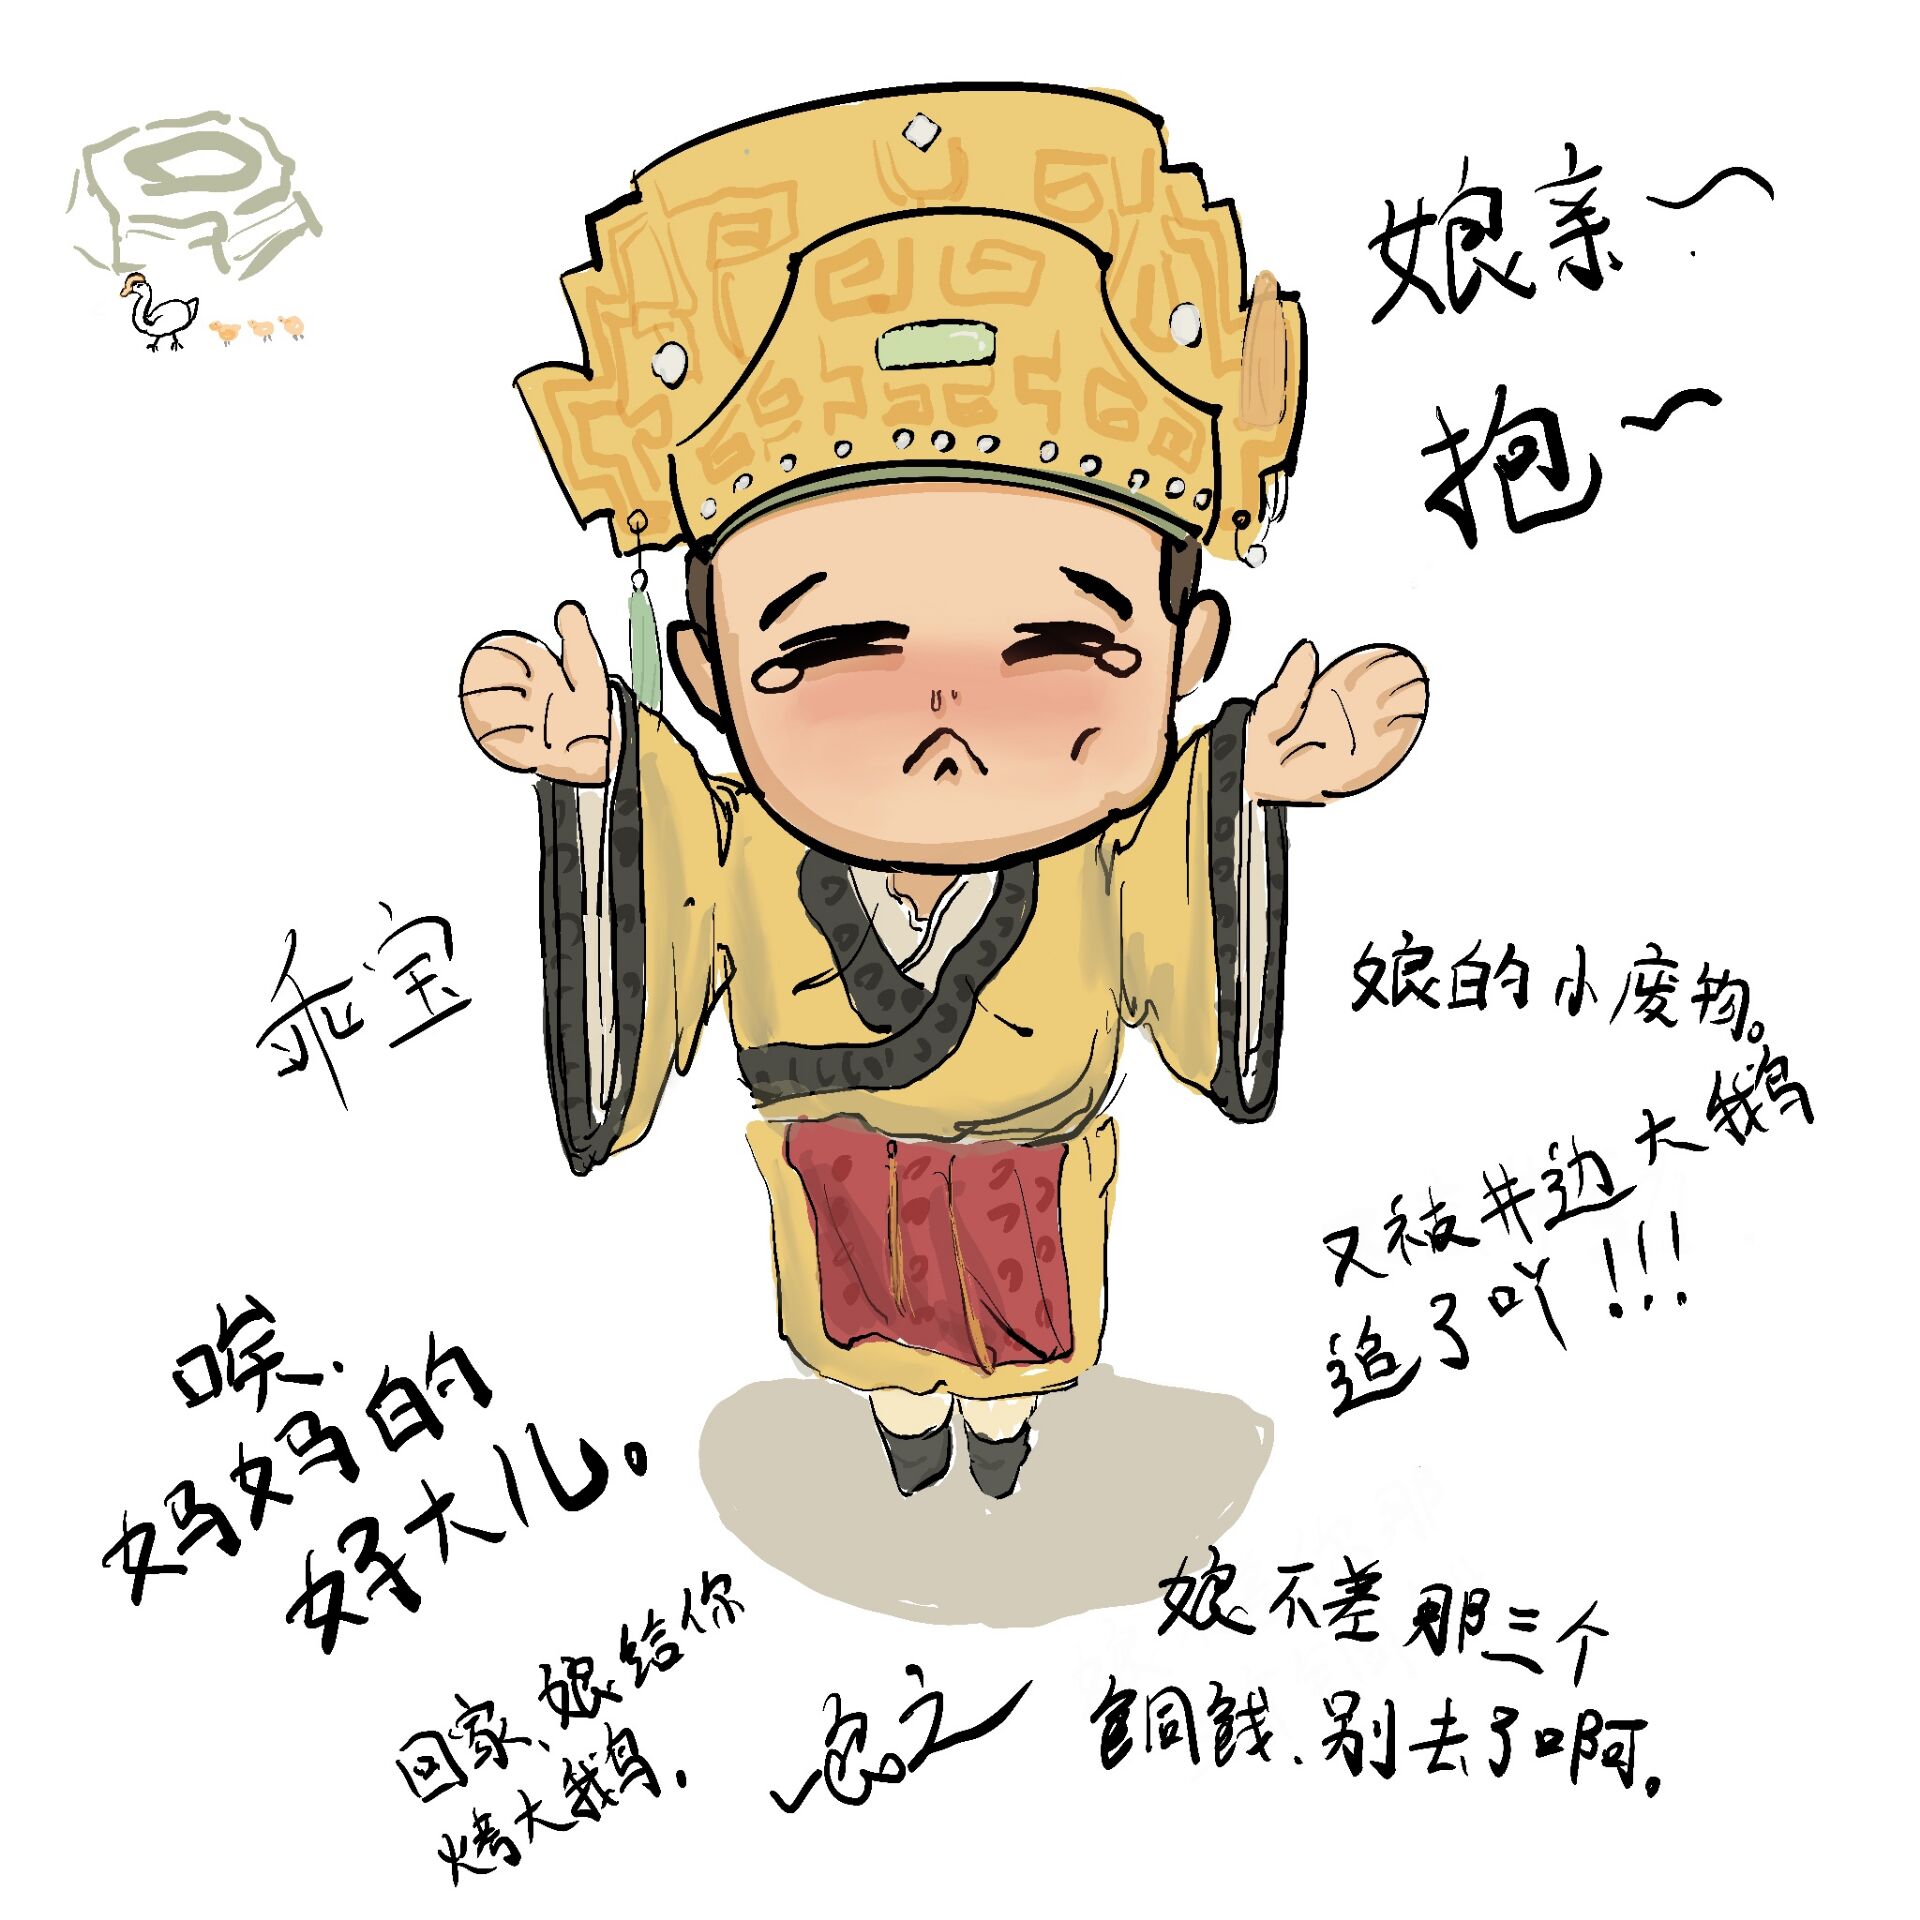 娘亲~
抱~
乖宝
娘的小废物。
又被井边大鹅
追了吖!!!
唉.
妈妈的
好大儿。
回家、娘给你
烤大鹅.
娘不差那三个
銅錢.别去了啊.